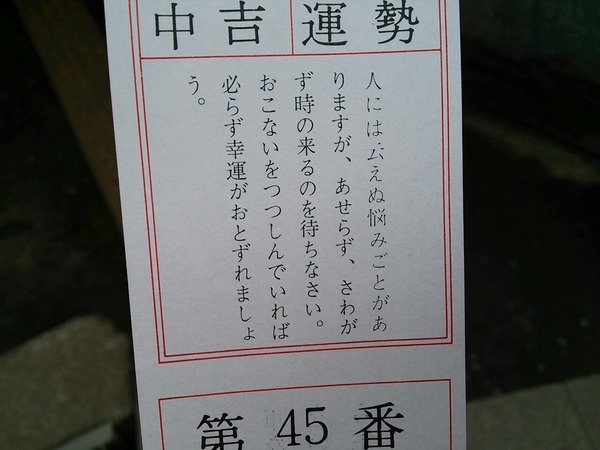 運勢
中吉
人には云えぬ悩みごとがあ
りますが、あせらず、さわが
ず時の来るのを待ちなさい。
おこないをつつしんでいれば
必らず幸運がおとずれましょ
う。
第45番